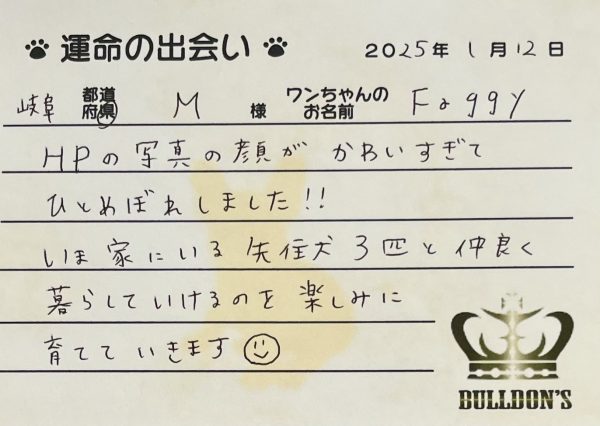 運命の出会い 2025年 1月12日
岐阜 都道府県 M 様 ワンちゃんのお名前 Foggy
HPの写真の顔が かわいすぎて
ひとめぼれしました!!
いま家にいる先住犬3匹と仲良く
暮らしていけるのを楽しみに
育てていきます
BULLDON'S